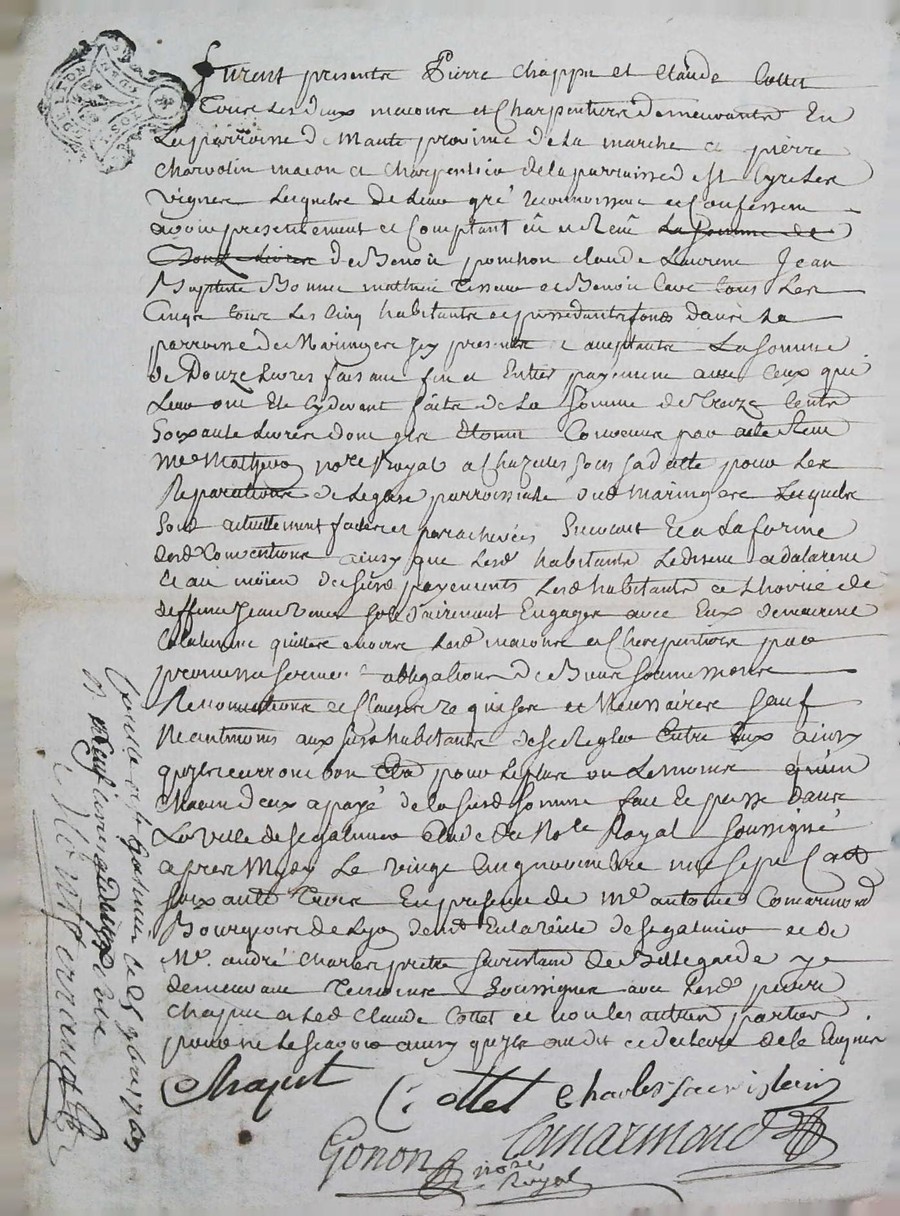 furent presentz Pierre Chappu et Claude Cottet
Touts Les deux macons et Charpentiers demeurants En
La parroisse de provinçe de La marche et pierre
Charvolin macon et charpentier de la parroisse de St Cyr Les
vignes Lesquels de Leur gré reconnoissent et Confessent
avoir presentement et Comptant eû et Reçû La Somme de
Douze Livres de Benoit ponchon Claude Laurent Jean
Baptiste Bonnet mathieu Tisseur et Benoit Cave tous Les
Cinqs tous Les Cinq habitants et possedants fonds dans La
parroisse de Maringes jcy presents et acceptants La Somme
de Douze Livres faisant fin et Entier payement avec Ceux qui
Leur ont Eté Cydevant faits de La Somme de Treize Cents
Soixante Livres dont ils Etoient Convenus par acte Reçu
Me Mathevon nore Royal a Chazelles Sous Sa datte pour Les
Reparations de Leglise parroissiale dud Maringes Lesquelles
Sont actuellement faittes et parachevées Suivant Et a La forme
desd Conventions ainsy que Lesd habitants Le disent et declarent
Et au moïen desusd payements Lesd habitants et
deffunt Jean avec Eux demeurent
quittes envers Lesd macons et Cherpentiers par
promesses serment obligations de Biens Soumissions
Renonciations et Clauses requises et Necessaires Sauf
Neantmoins aux susd habitants de se Regler Entre Eux ainsy
quils verront bon Etre pour Le plus ou Le moins qu'un
Chacun deux a payé de la susd Somme fait Et passé dans
La ville de St galmier Etude du Nore Royal Soussigné
apres Midy Le vingt Cinq novembre mil sept Cent
soixante Trois En presence de Me antoine Comarmond
Bourgeois de Lyon demt En La ville de St galmier et de
Mre andré Charles prêtre Sacristain de Bellegarde y
demeurant Temoins Soussignes avec Lesd pierre
Chapu et Led Claude Cottet et non les autres parties
pour ne Le Scavoir ainsy quils ont dit et declaré de le Enquis
Chaput
C. Cottet Charles Sacristain
Gonon nore Royal
Comarmond
Controllé a St Galmier le 25 9bre 1763